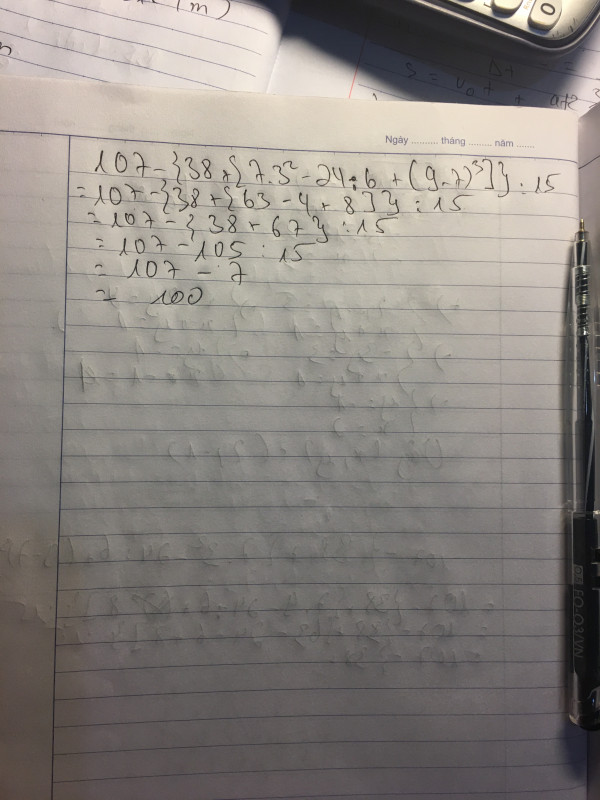 (m)
0
Δt
S = v₀t + at²
Ngày .......... tháng ......... năm ......
107-{38+{7.3²-24:6+(9-7)³]}:15
=107-{38+{63-4+8]}:15
=107-{38+67}:15
=107-105:15
= 107 - 7
= 100